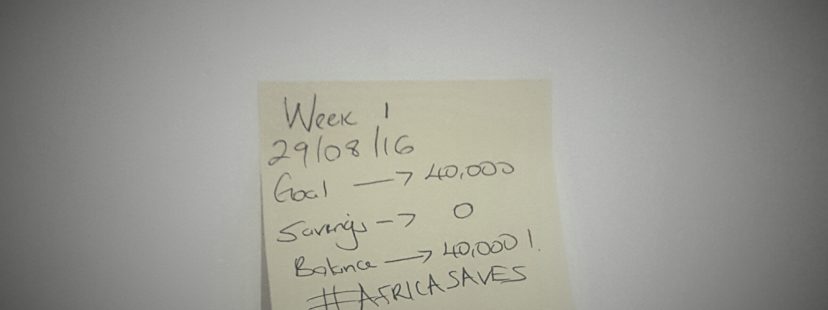 Week 1
29/08/16
Goal —> 40,000
Savings -> 0
Balance —> 40,000!.
#AFRICASAVES